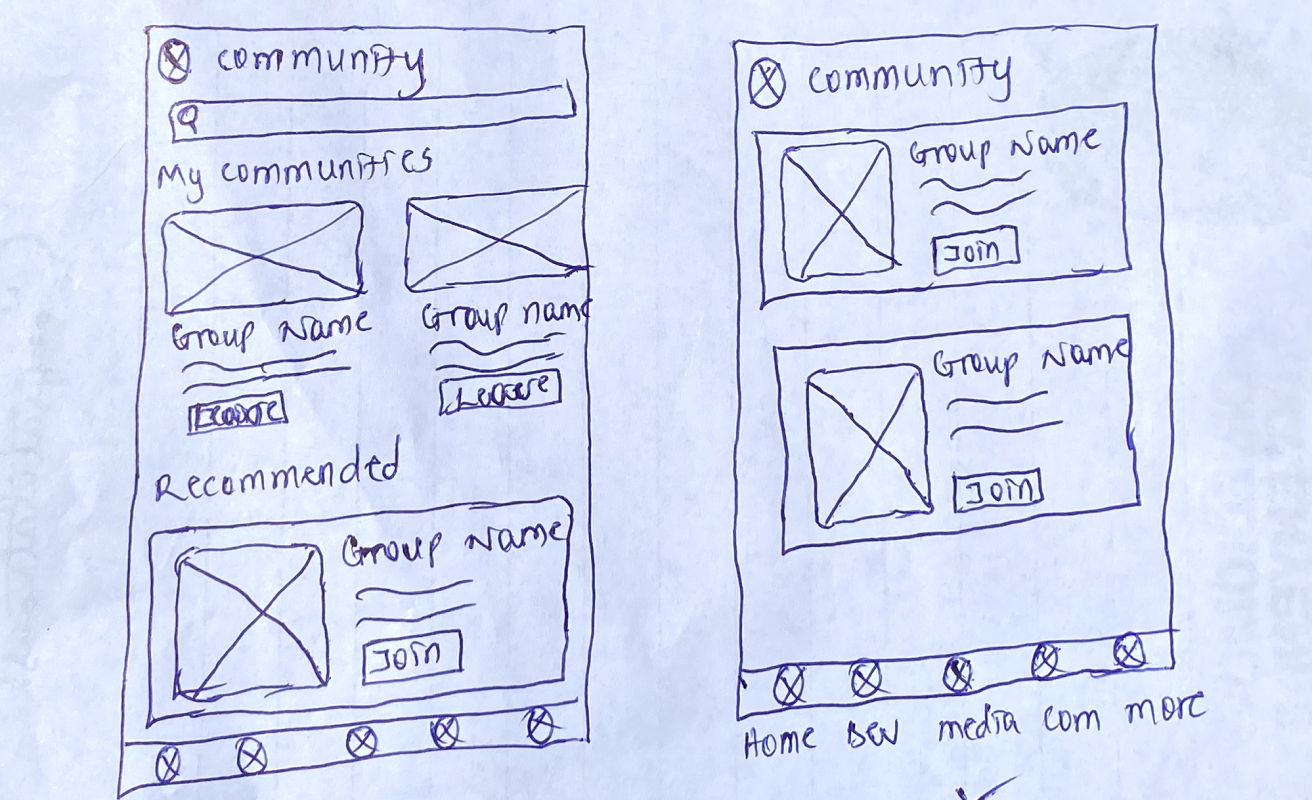 community
My communities
Group Name
Group name
Leave
Leave
Recommended
Group Name
Join
community
Group Name
Join
Group Name
Join
Home Dev media com more